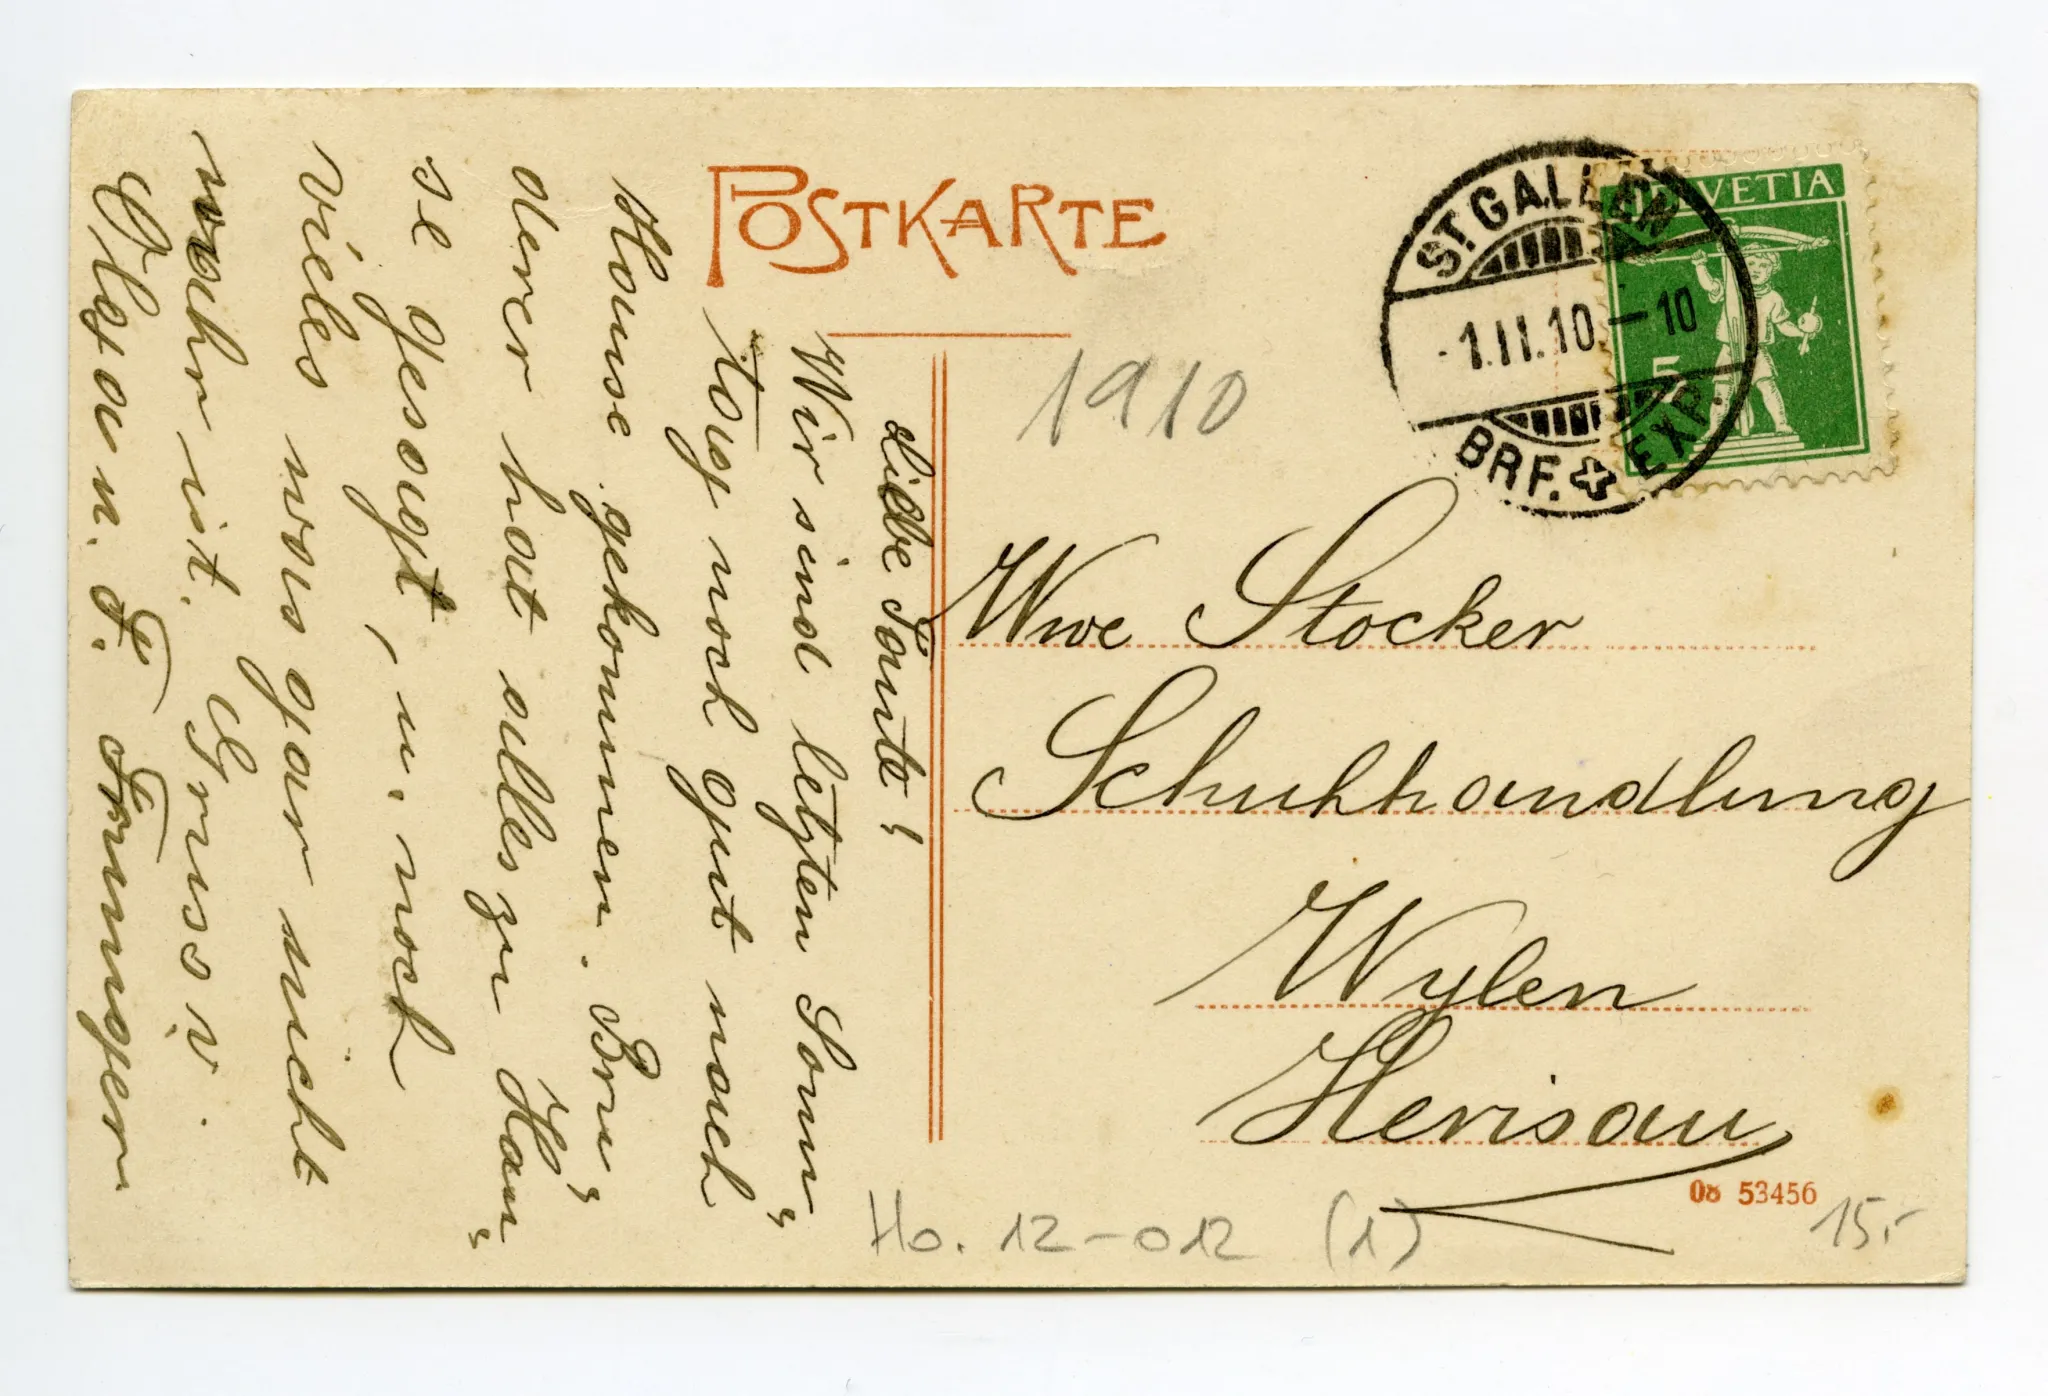 POSTKARTE
ST. GALLEN
-1.II.10-10
BRF. EXP.
HELVETIA
5
1910
Wwe Stocker
Schuhhandlung
Wylen
Herisau
08 53456
Ho. 12-012 (1)
15.-
Liebe Tante!
Wir sind letzten Sonn"
tag noch gut nach
Hause gekommen. Bru"
der hat alles zu Hau"
se gesagt, u. noch
vieles was gar nicht
wahr ist. Gruss v.
u. F.